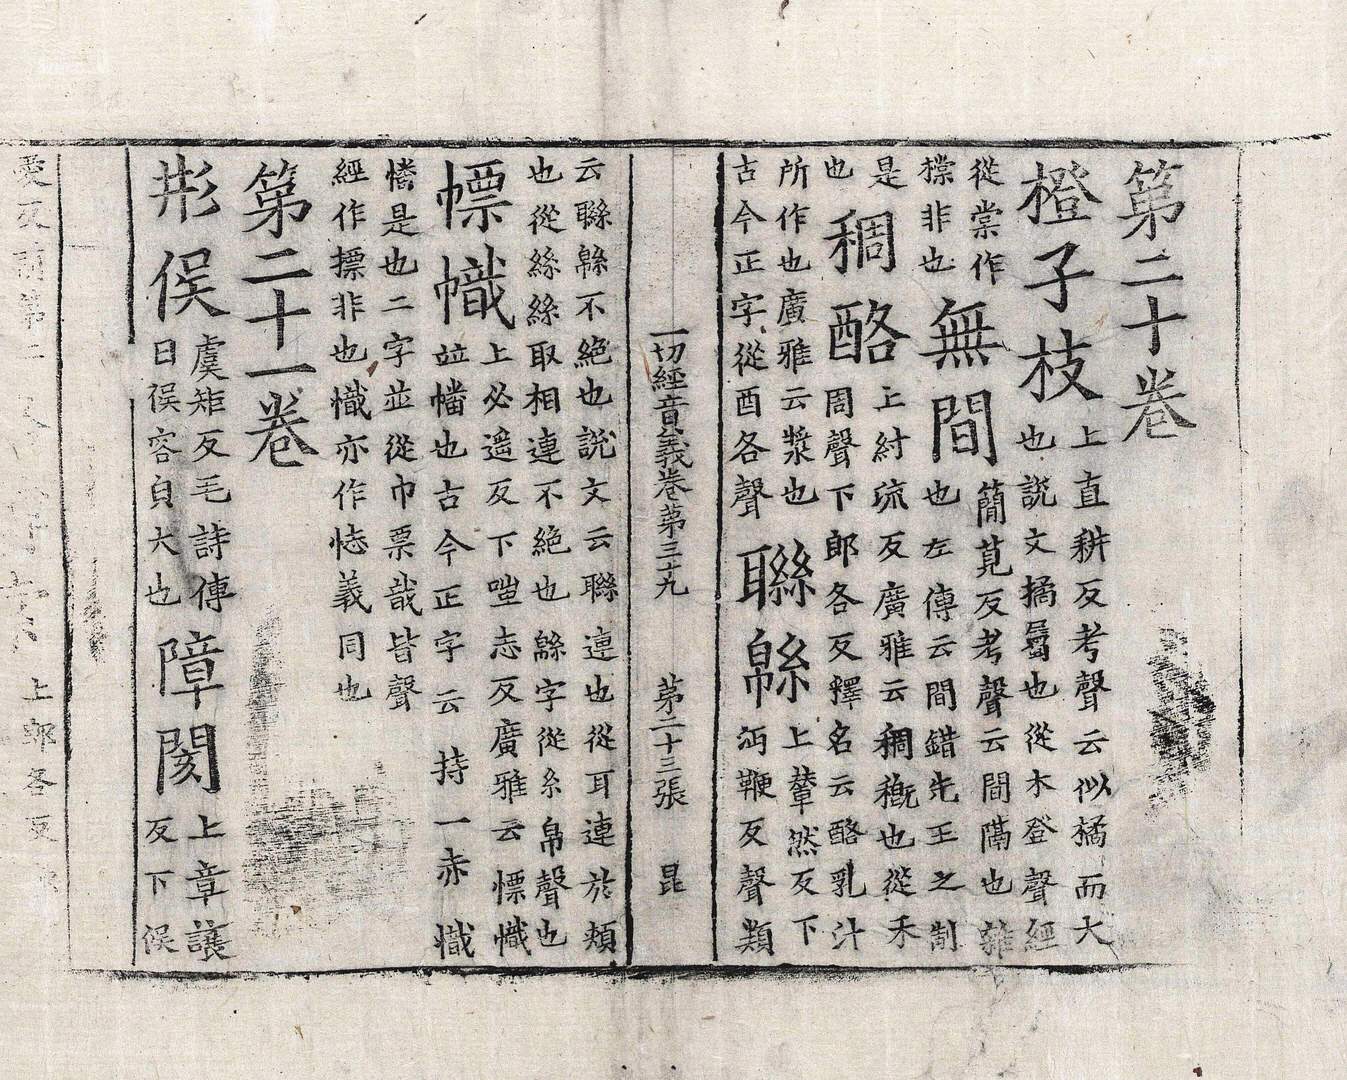 第二十卷
橙子枝上直耕反考聲云似橘而大
也説文橘屬也從木登聲經
從棠作
橖非也無間簡莧反考聲云間隔也雜
也左傳云間錯先王之制
是
也稠酪上紂流反廣雅云稠穊也從禾
周聲下郎各反釋名云酪乳汁
所作也廣雅云漿也
古今正字從酉各聲聯緜上輦然反下
沔鞭反聲類
一切經音義卷第三十九 第二十三張 昆
云聯緜不絕也説文云聯連也從耳連於頰
也從絲絲取相連不絕也緜字從糸帛聲也
幖幟上必遥反下嗤志反廣雅云幖幟
竝幡也古今正字云持一赤幟
幡是也二字並從巾票哉皆聲
經作摽非也幟亦作㤝義同也
第二十一卷
俣虞矩反毛詩傳
曰俣容皃大也障閡上章讓
反下
上郎各反